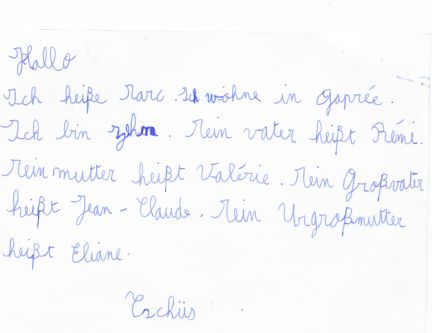 Hallo
Ich heiße Marc. Ich wohne in Gaprée.
Ich bin zehn. Mein vater heißt Rémi.
Mein mutter heißt Valérie. Mein Großvater
heißt Jean-Claude. Mein Urgroßmutter
heißt Eliane.
Tschüs